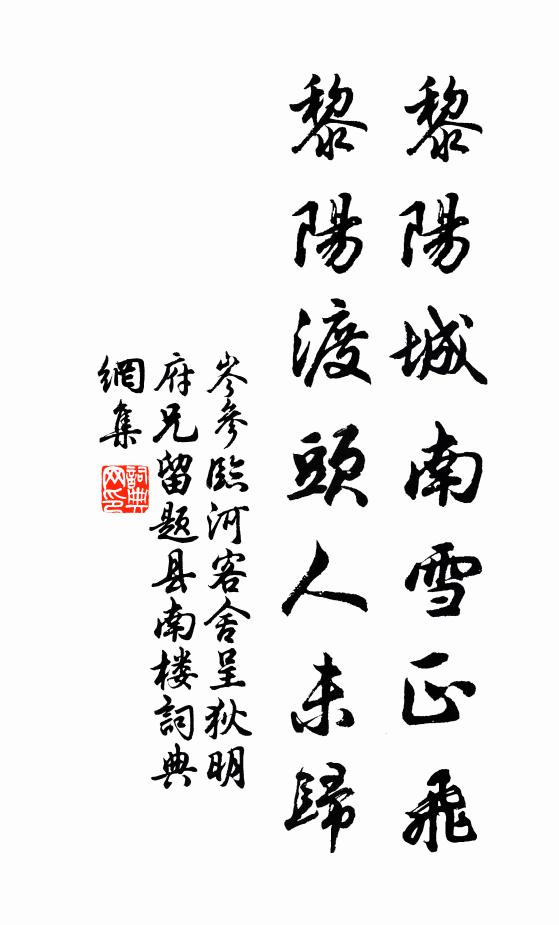 黎陽城南雪正飛
黎陽渡頭人未歸
岑參臨河客舍呈狄明
府兄留题县南楼詞典
網集
詞典
网印